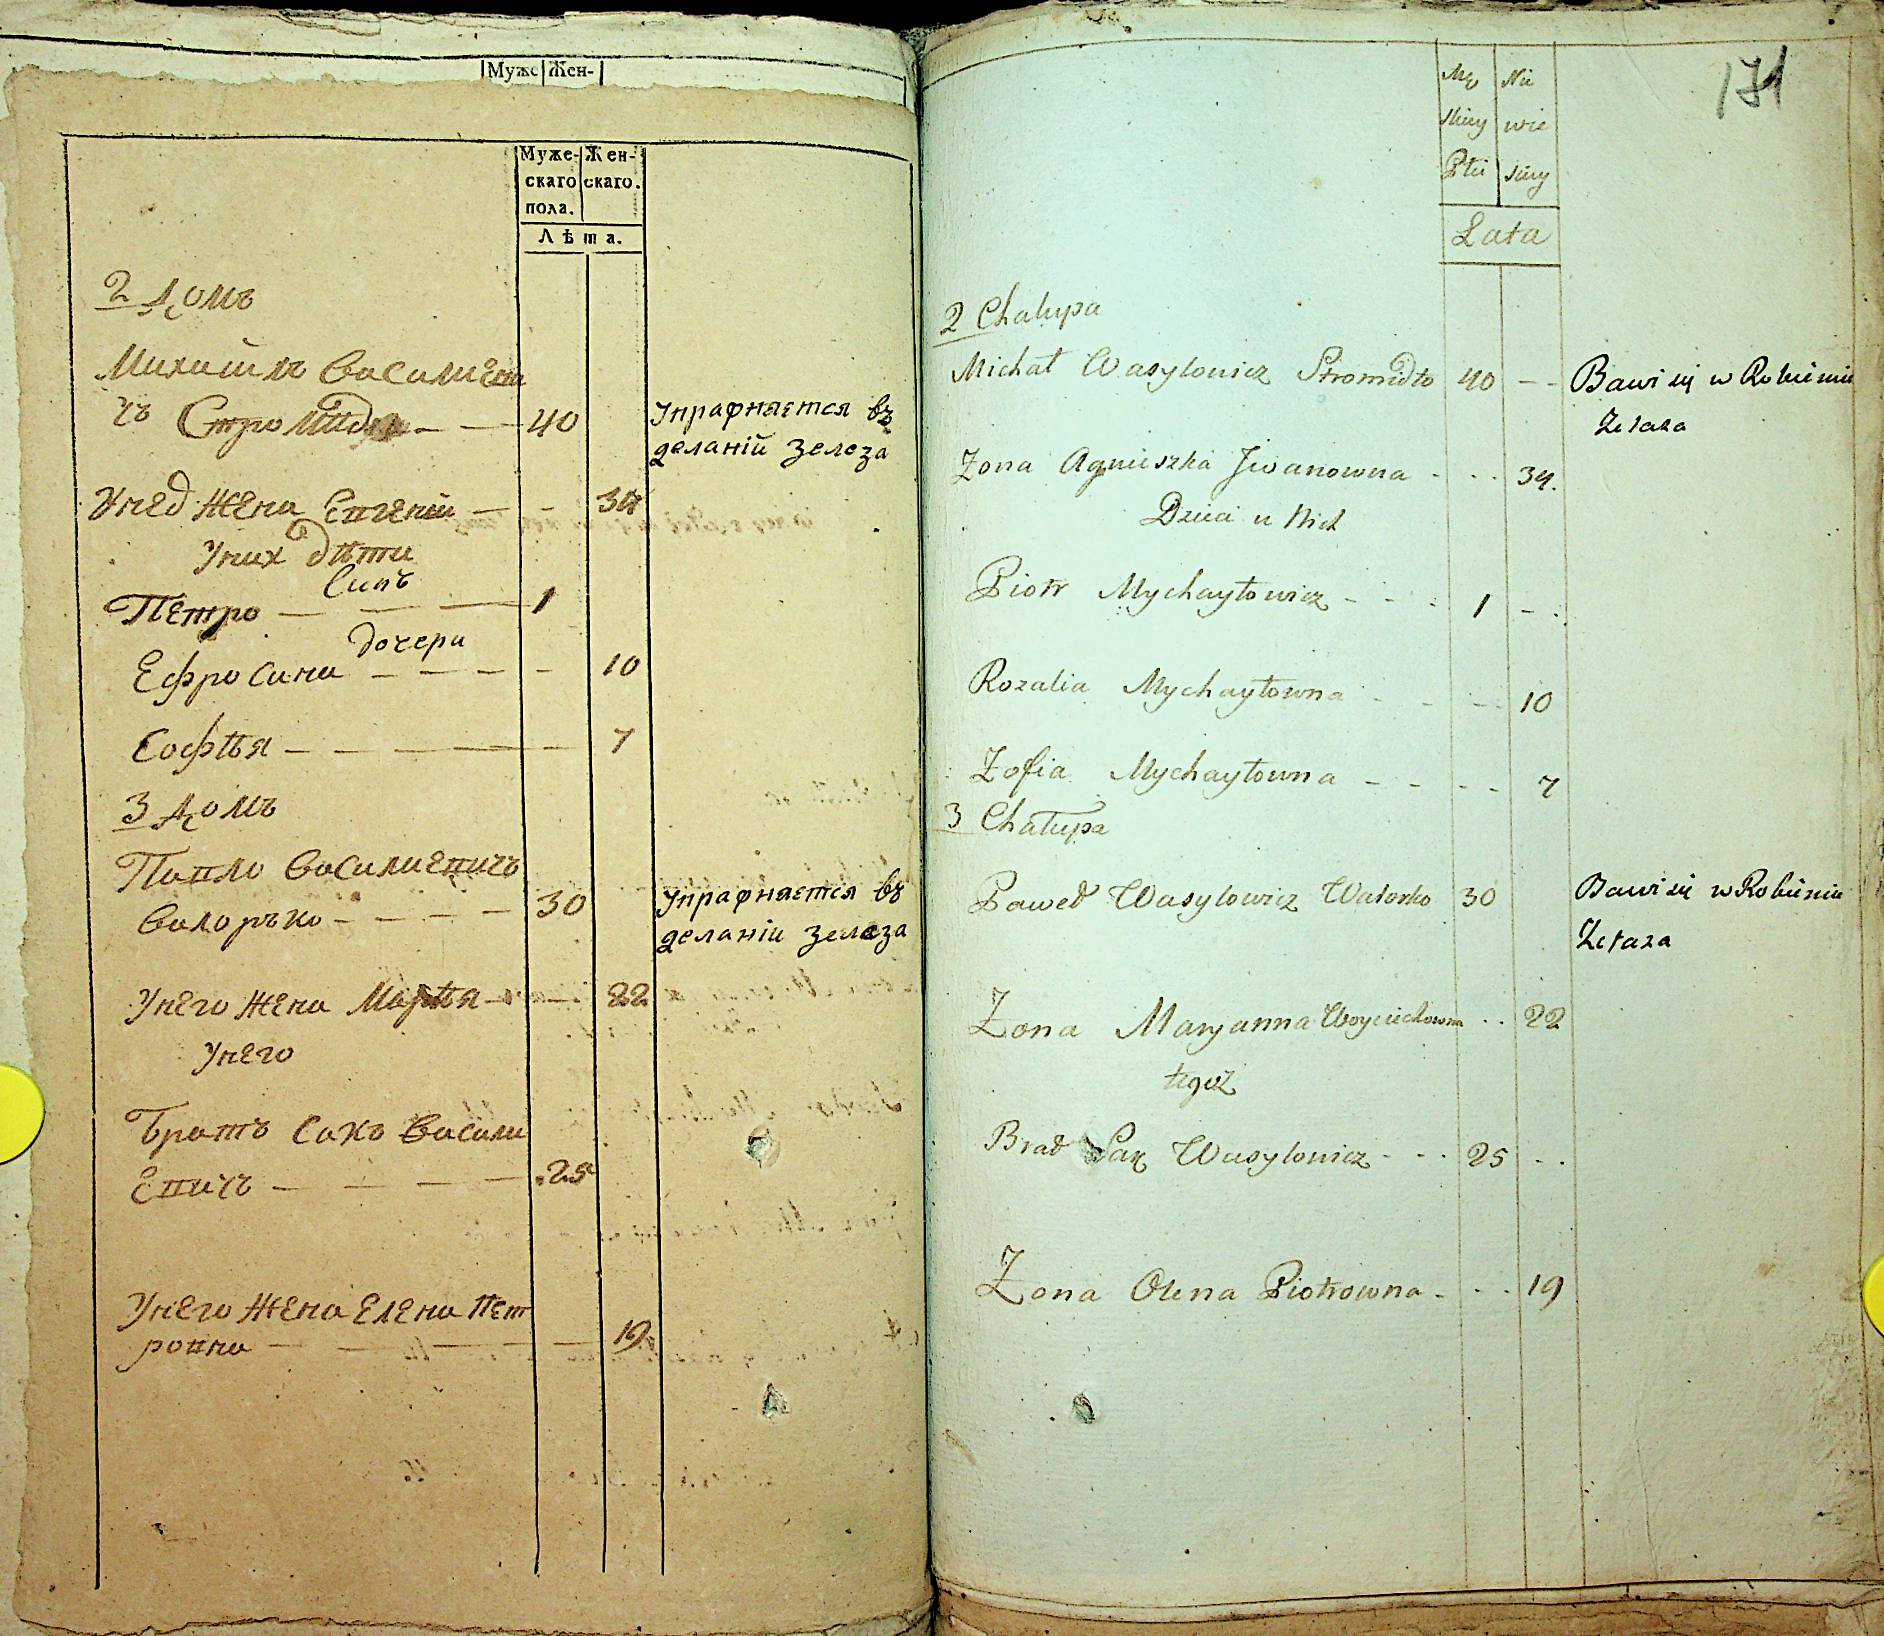 Муже Жен-
Муже- Жен-
скаго скаго.
пола.
Лѣта.
2 Домъ
Михайлъ Василиеви
чъ Стромидло 40 Упражняется въ
деланїй Зелеза
Унед жена Евгенїй 34
Уних дѣти
Синъ
Петро 1
дочери
Ефросина 10
Софѣя 7
3 Домъ
Павло Василиевичъ
Валорько 30 Упражняется въ
деланїи Зелеза
Унего жена Марѣя 22
Унего
Братъ Сакъ Васили
Евичъ 25
Унего жена Елена Пет
ровна 19
171
Mę Nie
skiey wie
Płci sciey
Lata
2 Chalupa
Michał Wasylowicz Stromidło 40 Bawi się w Robieniu
Żelaza
Żona Agnieszka Jwanowna 34.
Dzieci u Nich
Piotr Mychayłowicz 1
Rozalia Mychayłowna 10
Zofia Mychayłowna 7
3 Chałupa
Paweł Wasylowicz Walorko 30 Bawi się w Robieniu
Żelaza
Żona Maryanna Woyciechowna 22
tegoż
Brad Sak Wasylowicz 25
Żona Olena Piotrowna 19